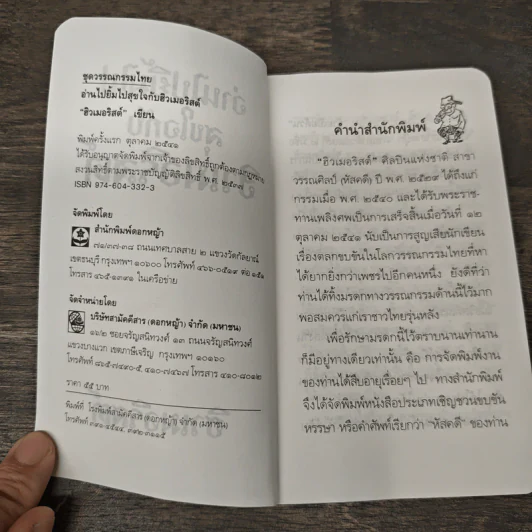 ชุดวรรณกรรมไทย
อ่านไปยิ้มไปสุขใจกับฮิวเมอริสต์
“ฮิวเมอริสต์” เขียน
พิมพ์ครั้งแรก ตุลาคม ๒๕๔๑
ได้รับอนุญาตจัดพิมพ์จากเจ้าของลิขสิทธิ์ถูกต้องตามกฎหมาย
สงวนสิทธิ์ตามพระราชบัญญัติลิขสิทธิ์ พ.ศ. ๒๕๓๗
ISBN 974-604-332-3
จัดพิมพ์โดย
สำนักพิมพ์ดอกหญ้า
๗๑/๓๗-๓๘ ถนนเทศบาลสาย ๒ แขวงวัดกัลยาณ์
เขตธนบุรี กรุงเทพฯ ๑๐๖๐๐ โทรศัพท์ ๔๖๖-๐๕๑๙ ต่อ
โทรสาร ๔๖๕-๑๓๙๑ ในเครือข่าย
จัดจำหน่ายโดย
บริษัทสามัคคีสาร (ดอกหญ้า) จำกัด (มหาชน)
๑๖/๒ ซอยจรัญสนิทวงศ์ ๑๓ ถนนจรัญสนิทวงศ์
แขวงบางแวก เขตภาษีเจริญ กรุงเทพฯ ๑๐๑๖๐
โทรศัพท์ ๔๑๐-๗๔๖๗ โทรสาร ๔๑๐-๘๐๑๒
ราคา ๕๕ บาท
พิมพ์ที่ โรงพิมพ์สามัคคีสาร (ดอกหญ้า) จำกัด (มหาชน)
โทรศัพท์
คำนำสำนักพิมพ์
“ฮิวเมอริสต์” ศิลปินแห่งชาติ สาขา
วรรณศิลป์ (หัสคดี) ปี พ.ศ. ๒๕๒๙ ได้ถึงแก่
กรรมเมื่อ พ.ศ. ๒๕๔๐ และได้รับพระราช-
ทานเพลิงศพเป็นการเสร็จสิ้นเมื่อวันที่ ๑๒
ตุลาคม ๒๕๔๑ นับเป็นการสูญเสียนักเขียน
เรื่องตลกขบขันในโลกวรรณกรรมไทยที่หา
ได้ยากยิ่งกว่าเพชรไปอีกคนหนึ่ง ยังดีที่ว่า
ท่านได้ทิ้งมรดกทางวรรณกรรมด้านนี้ไว้มาก
พอสมควรแก่เราชาวไทยรุ่นหลัง
เพื่อรักษามรดกนี้ไว้ตราบนานเท่านาน
ก็มีอยู่ทางเดียวเท่านั้น คือ การจัดพิมพ์งาน
ของท่านได้สืบอายุเรื่อยๆ ไป ทางสำนักพิมพ์
จึงได้จัดพิมพ์หนังสือประเภทเชิงชวนขบขัน
หรรษา หรือคำศัพท์เรียกว่า “หัสคดี” ของท่าน